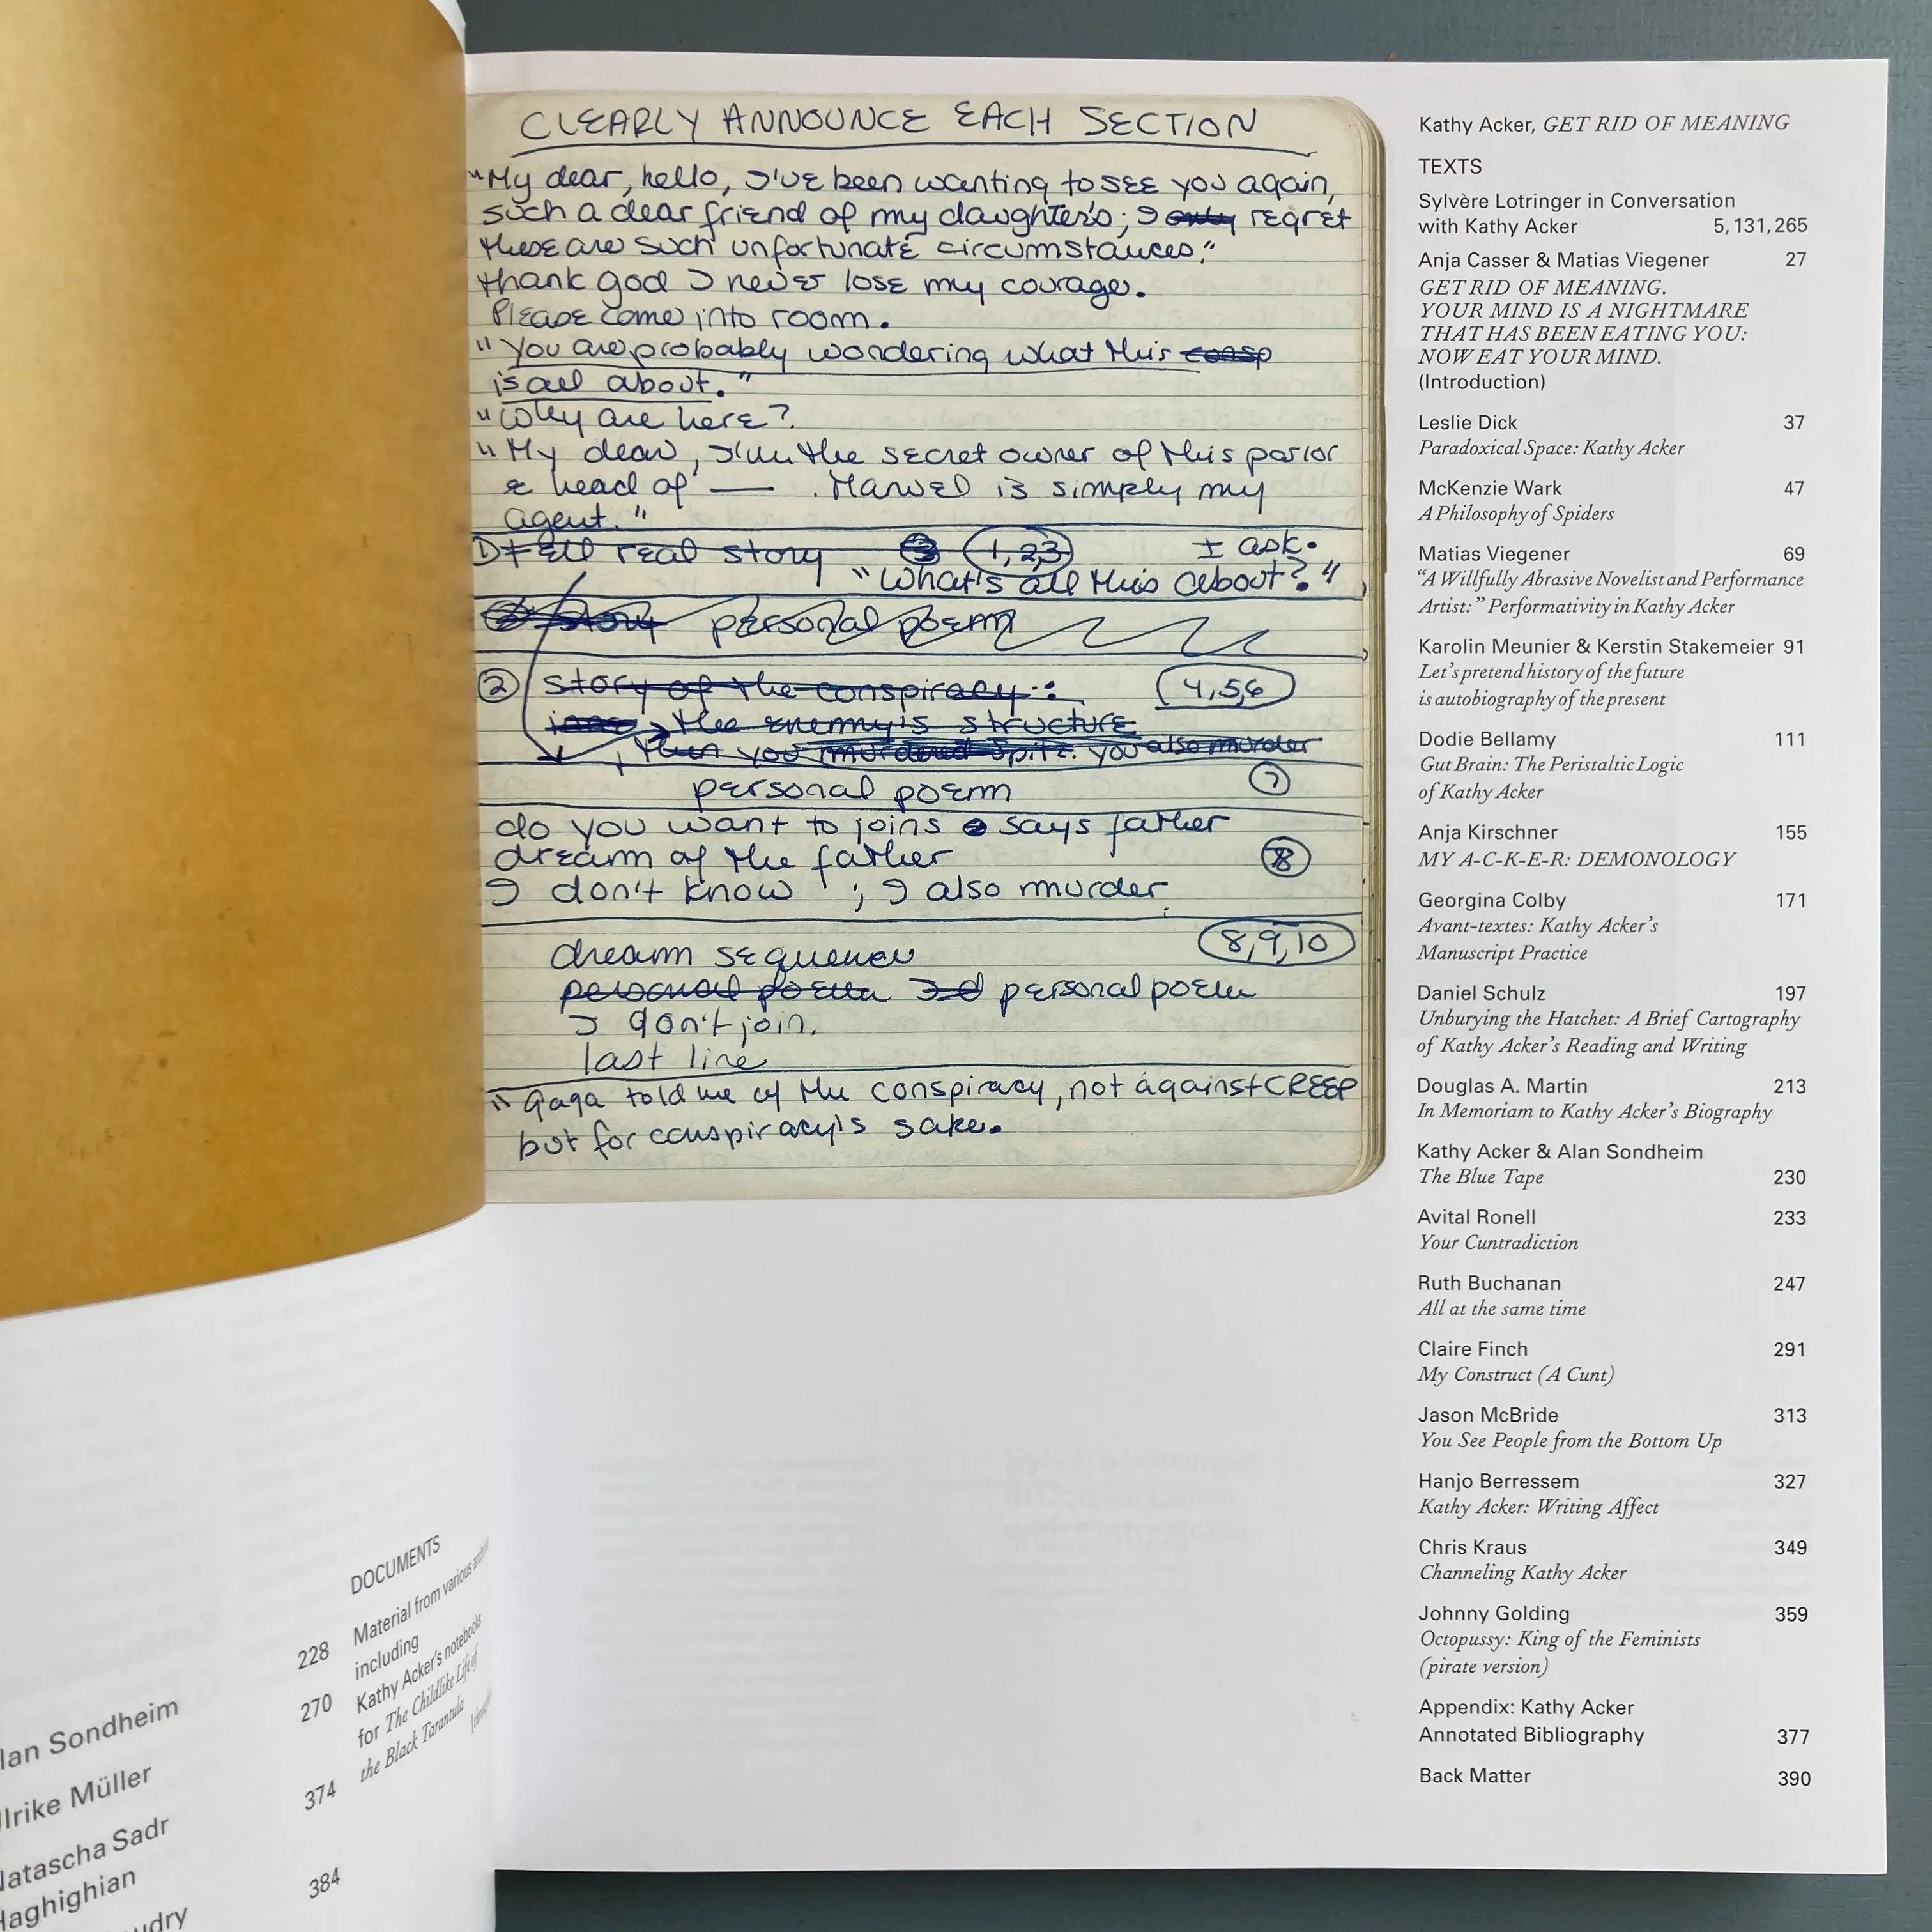 CLEARLY ANNOUNCE EACH SECTION
"My dear, hello, I've been wanting to see you again,
such a dear friend of my daughter's; I only regret
these are such unfortunate circumstances."
thank god I never lose my courage.
Please come into room.
"You are probably wondering what this consp
is all about."
"Why are here?
"My dear, I'm the secret owner of this parlor
& head of — . Marvel is simply my
agent."
1) tell real story 3 1,2,3 I ask.
"What's all this about?"
story personal poem
2 story of the conspiracy: 4,5,6
the enemy's structure
then you murdered Spitz. you also murder
personal poem 7
do you want to joins says father
dream of the father 8
I don't know ; I also murder
dream sequence 8,9,10
personal poem 3d personal poem
I don't join.
last line
"Gaga told me of the conspiracy, not against CREEP
but for conspiracy's sake.
Kathy Acker, GET RID OF MEANING
TEXTS
Sylvère Lotringer in Conversation
with Kathy Acker 5, 131, 265
Anja Casser & Matias Viegener 27
GET RID OF MEANING.
YOUR MIND IS A NIGHTMARE
THAT HAS BEEN EATING YOU:
NOW EAT YOUR MIND.
(Introduction)
Leslie Dick 37
Paradoxical Space: Kathy Acker
McKenzie Wark 47
A Philosophy of Spiders
Matias Viegener 69
"A Willfully Abrasive Novelist and Performance
Artist:" Performativity in Kathy Acker
Karolin Meunier & Kerstin Stakemeier 91
Let's pretend history of the future
is autobiography of the present
Dodie Bellamy 111
Gut Brain: The Peristaltic Logic
of Kathy Acker
Anja Kirschner 155
MY A-C-K-E-R: DEMONOLOGY
Georgina Colby 171
Avant-textes: Kathy Acker's
Manuscript Practice
Daniel Schulz 197
Unburying the Hatchet: A Brief Cartography
of Kathy Acker's Reading and Writing
Douglas A. Martin 213
In Memoriam to Kathy Acker's Biography
Kathy Acker & Alan Sondheim
The Blue Tape 230
Avital Ronell 233
Your Cuntradiction
Ruth Buchanan 247
All at the same time
Claire Finch 291
My Construct (A Cunt)
Jason McBride 313
You See People from the Bottom Up
Hanjo Berressem 327
Kathy Acker: Writing Affect
Chris Kraus 349
Channeling Kathy Acker
Johnny Golding 359
Octopussy: King of the Feminists
(pirate version)
Appendix: Kathy Acker
Annotated Bibliography 377
Back Matter 390
lan Sondheim 228
lrike Müller 270
Natascha Sadr
Haghighian 374
udry 384
DOCUMENTS
Material from various
including
Kathy Acker's notebooks
for The Childlike Life of
the Black Tarantula